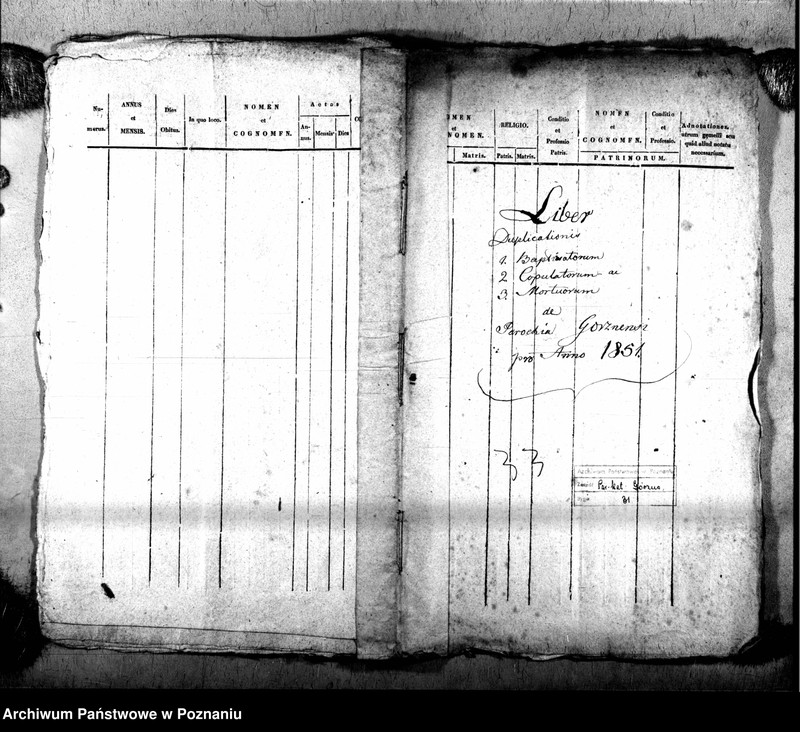 Nu-
merus.
ANNUS
et
MENSIS.
Dies
Obitus.
In quo loco.
NOMEN
et
COGNOMEN.
Aetas
An-
nus.
Mensis
Dies
CO
OMEN
et
NOMEN.
Matris.
RELIGIO.
Patris.
Matris.
Conditio
et
Professio
Patris.
NOMEN
et
COGNOMEN.
Conditio
et
Professio.
PATRINORUM.
Adnotationes,
utrum gemelli seu
quid aliud notatu
necessarium.
Liber
Duplicationis
1. Baptisatorum
2 Copulatorum ac
3. Mortuorum
de
Parochia
pro Anno 1851
33
Archiwum Państwowe w Poznaniu
31
Archiwum Państwowe w Poznaniu